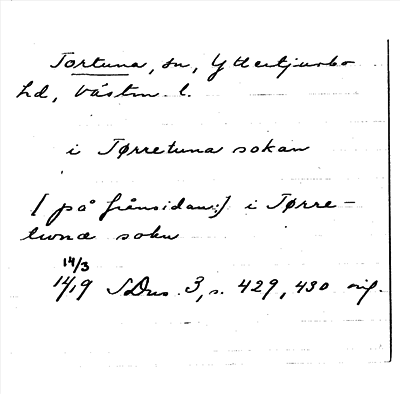 Tortuna, sn, Yttertjurbo
hd, Västm. l.
i Tørretuna sokan
[på frånsidan:] i Tørre-
tuna sokn
14/3
1419 SDns. 3, s. 429, 430 orig.